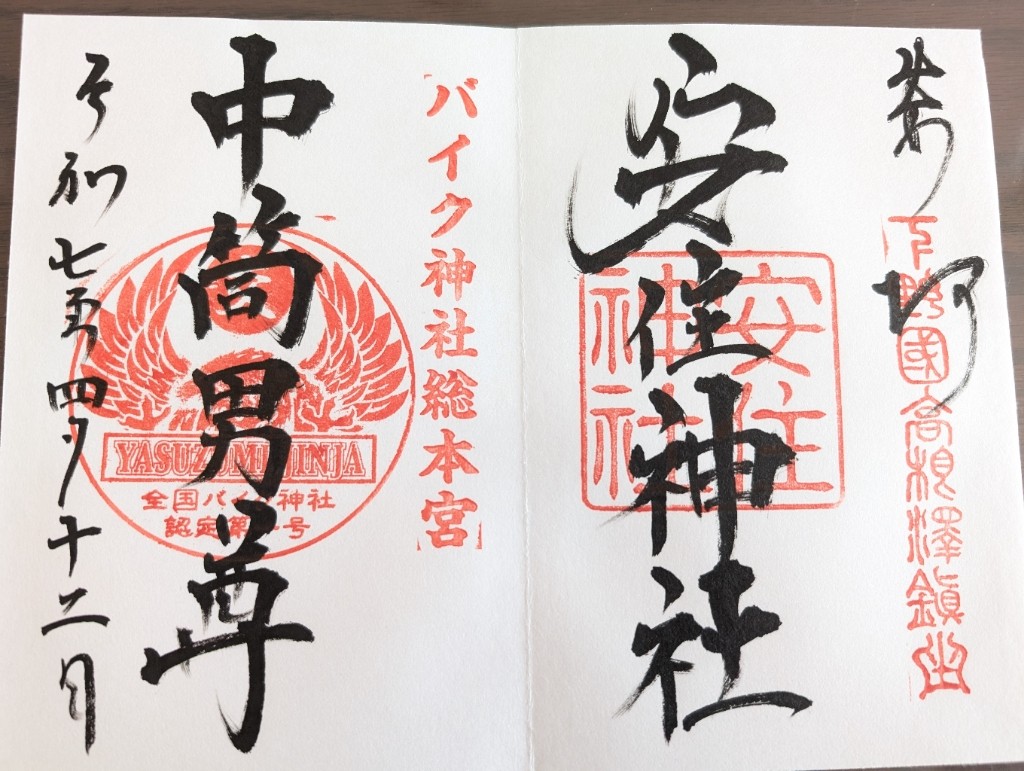 奉拝
下野國高根澤鎮
安住神社
安住
神社
バイク神社総本宮
中筒男尊
YASUZUMI JINJA
全国バイク神社
認定第一号
令和七年四月十二日